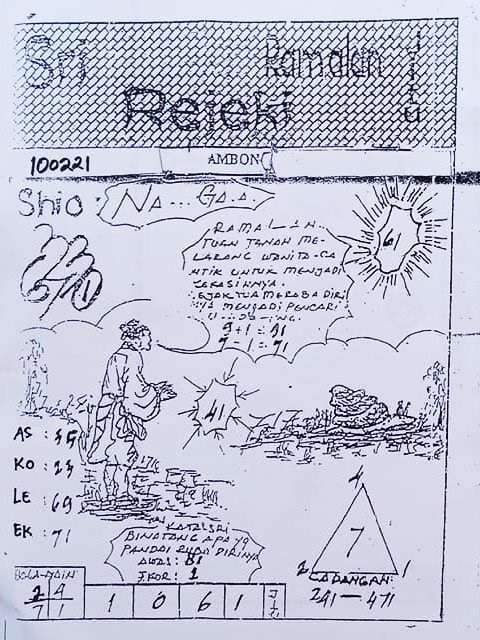 Sri
Ramalan
Rejeki
Untuk
100221
AMBON
Shio : NA... GA.A.
61
RAMALAN..
TUAN TANAH ME-
LARANG WANITA CA
NTIK UNTUK MENJADI
KEKASIHNYA.
EJAK TUA MERABA DIRI
NYA MENJADI PENCARI
9+1 = 91
7-1 = 71
41
AS :
KO : 23
LE : 69
EK : 71
KATA SRI
BINATANG APA YG
PANDAI RUBA DIRINYA
AWAS : 81
IKOR : 1
4
7
2 1
CADANGAN:
241 — 471
BOLA-MAIN
2 4
7 1
1 0 6 1